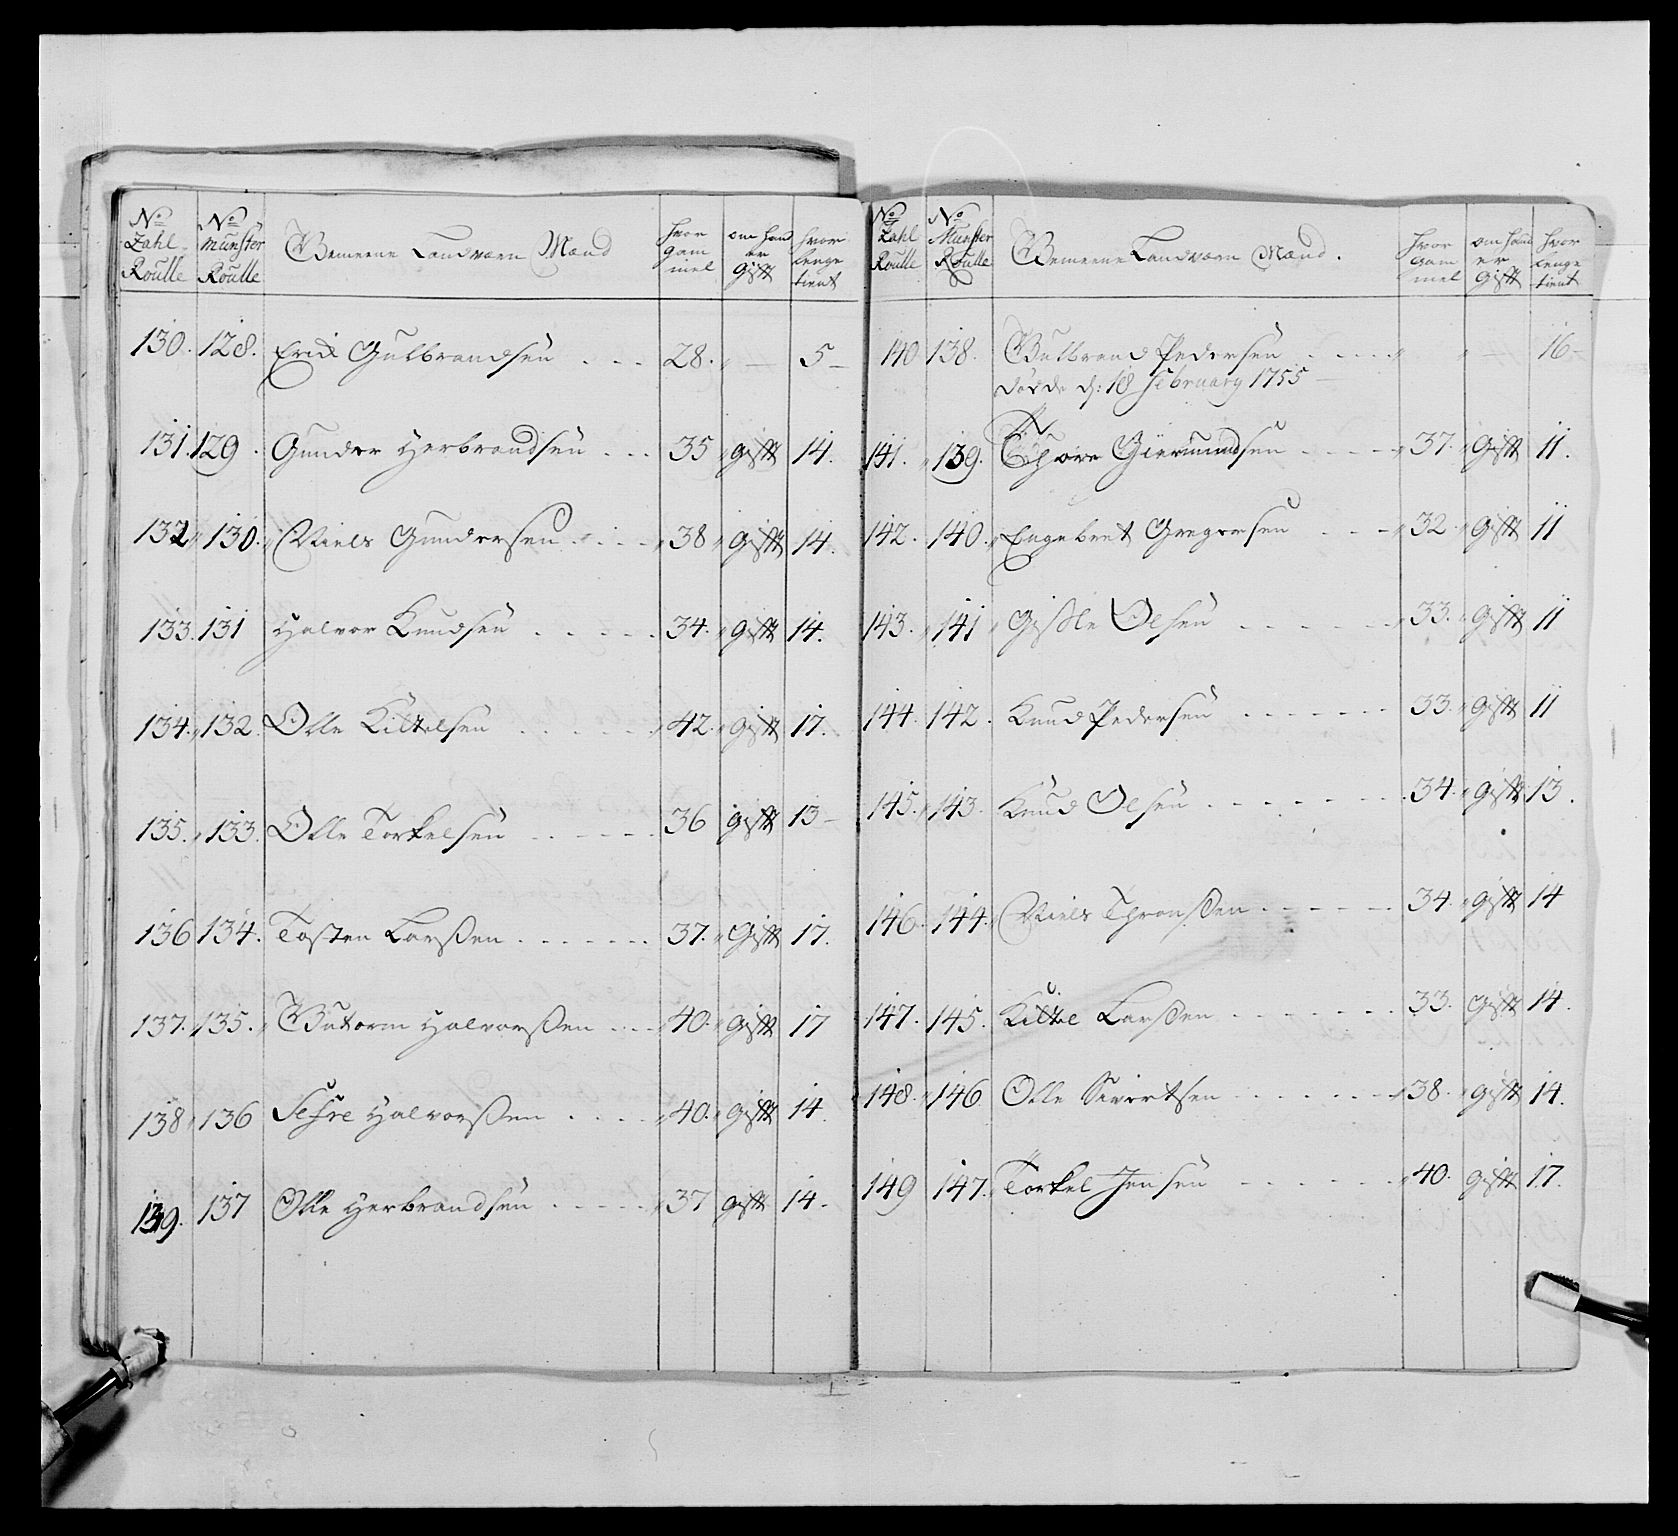 No Zahl Roulle | No Munster Roulle | Gemeene Landværn Mænd | hvor gammel | om hand er Gift | hvor lenge tient
130. 128. Erich Gulbrandsen 28. — 5
131. 129. Gunder Herbrandsen 35 gift 14.
132 130. Niels Gundersen 38 gift 14.
133. 131 Halvor Knudsen 34. gift 14.
134. 132. Olle Kittelsen 42. gift 17.
135. 133. Olle Torkelsen 36 gift 13
136 134. Tosten Larssen 37. Gift 17.
137. 135. Gutorm Halvorssen 40. gift 17
138 136 Sefre Halvorssen 40. gift 14
139. 137 Olle Herbrandsen 37 gift 14.
No Zahl Roulle | No Munster Roulle | Gemeene Landværn Mænd. | hvor gammel | om hand er Gift | hvor lenge tient
140 138. Gulbrand Pedersen — 16
døede d: 18 February 1755
141. 139. Thore Giermundsen 37. Gift 11.
142. 140. Engebret Gregersen 32 Gift 11
143. 141 Gisle Olsen 33. gift 11
144. 142. Knud Pedersen 33. gift 11
145. 143. Knud Olsen 34. gift 13.
146. 144. Niels Thronssen 34. gift 14
147. 145. Kittel Larssen 33. gift 14.
148. 146 Olle Sivertsen 38. gift 14.
149 147. Torkel Jensen 40. gift 17.